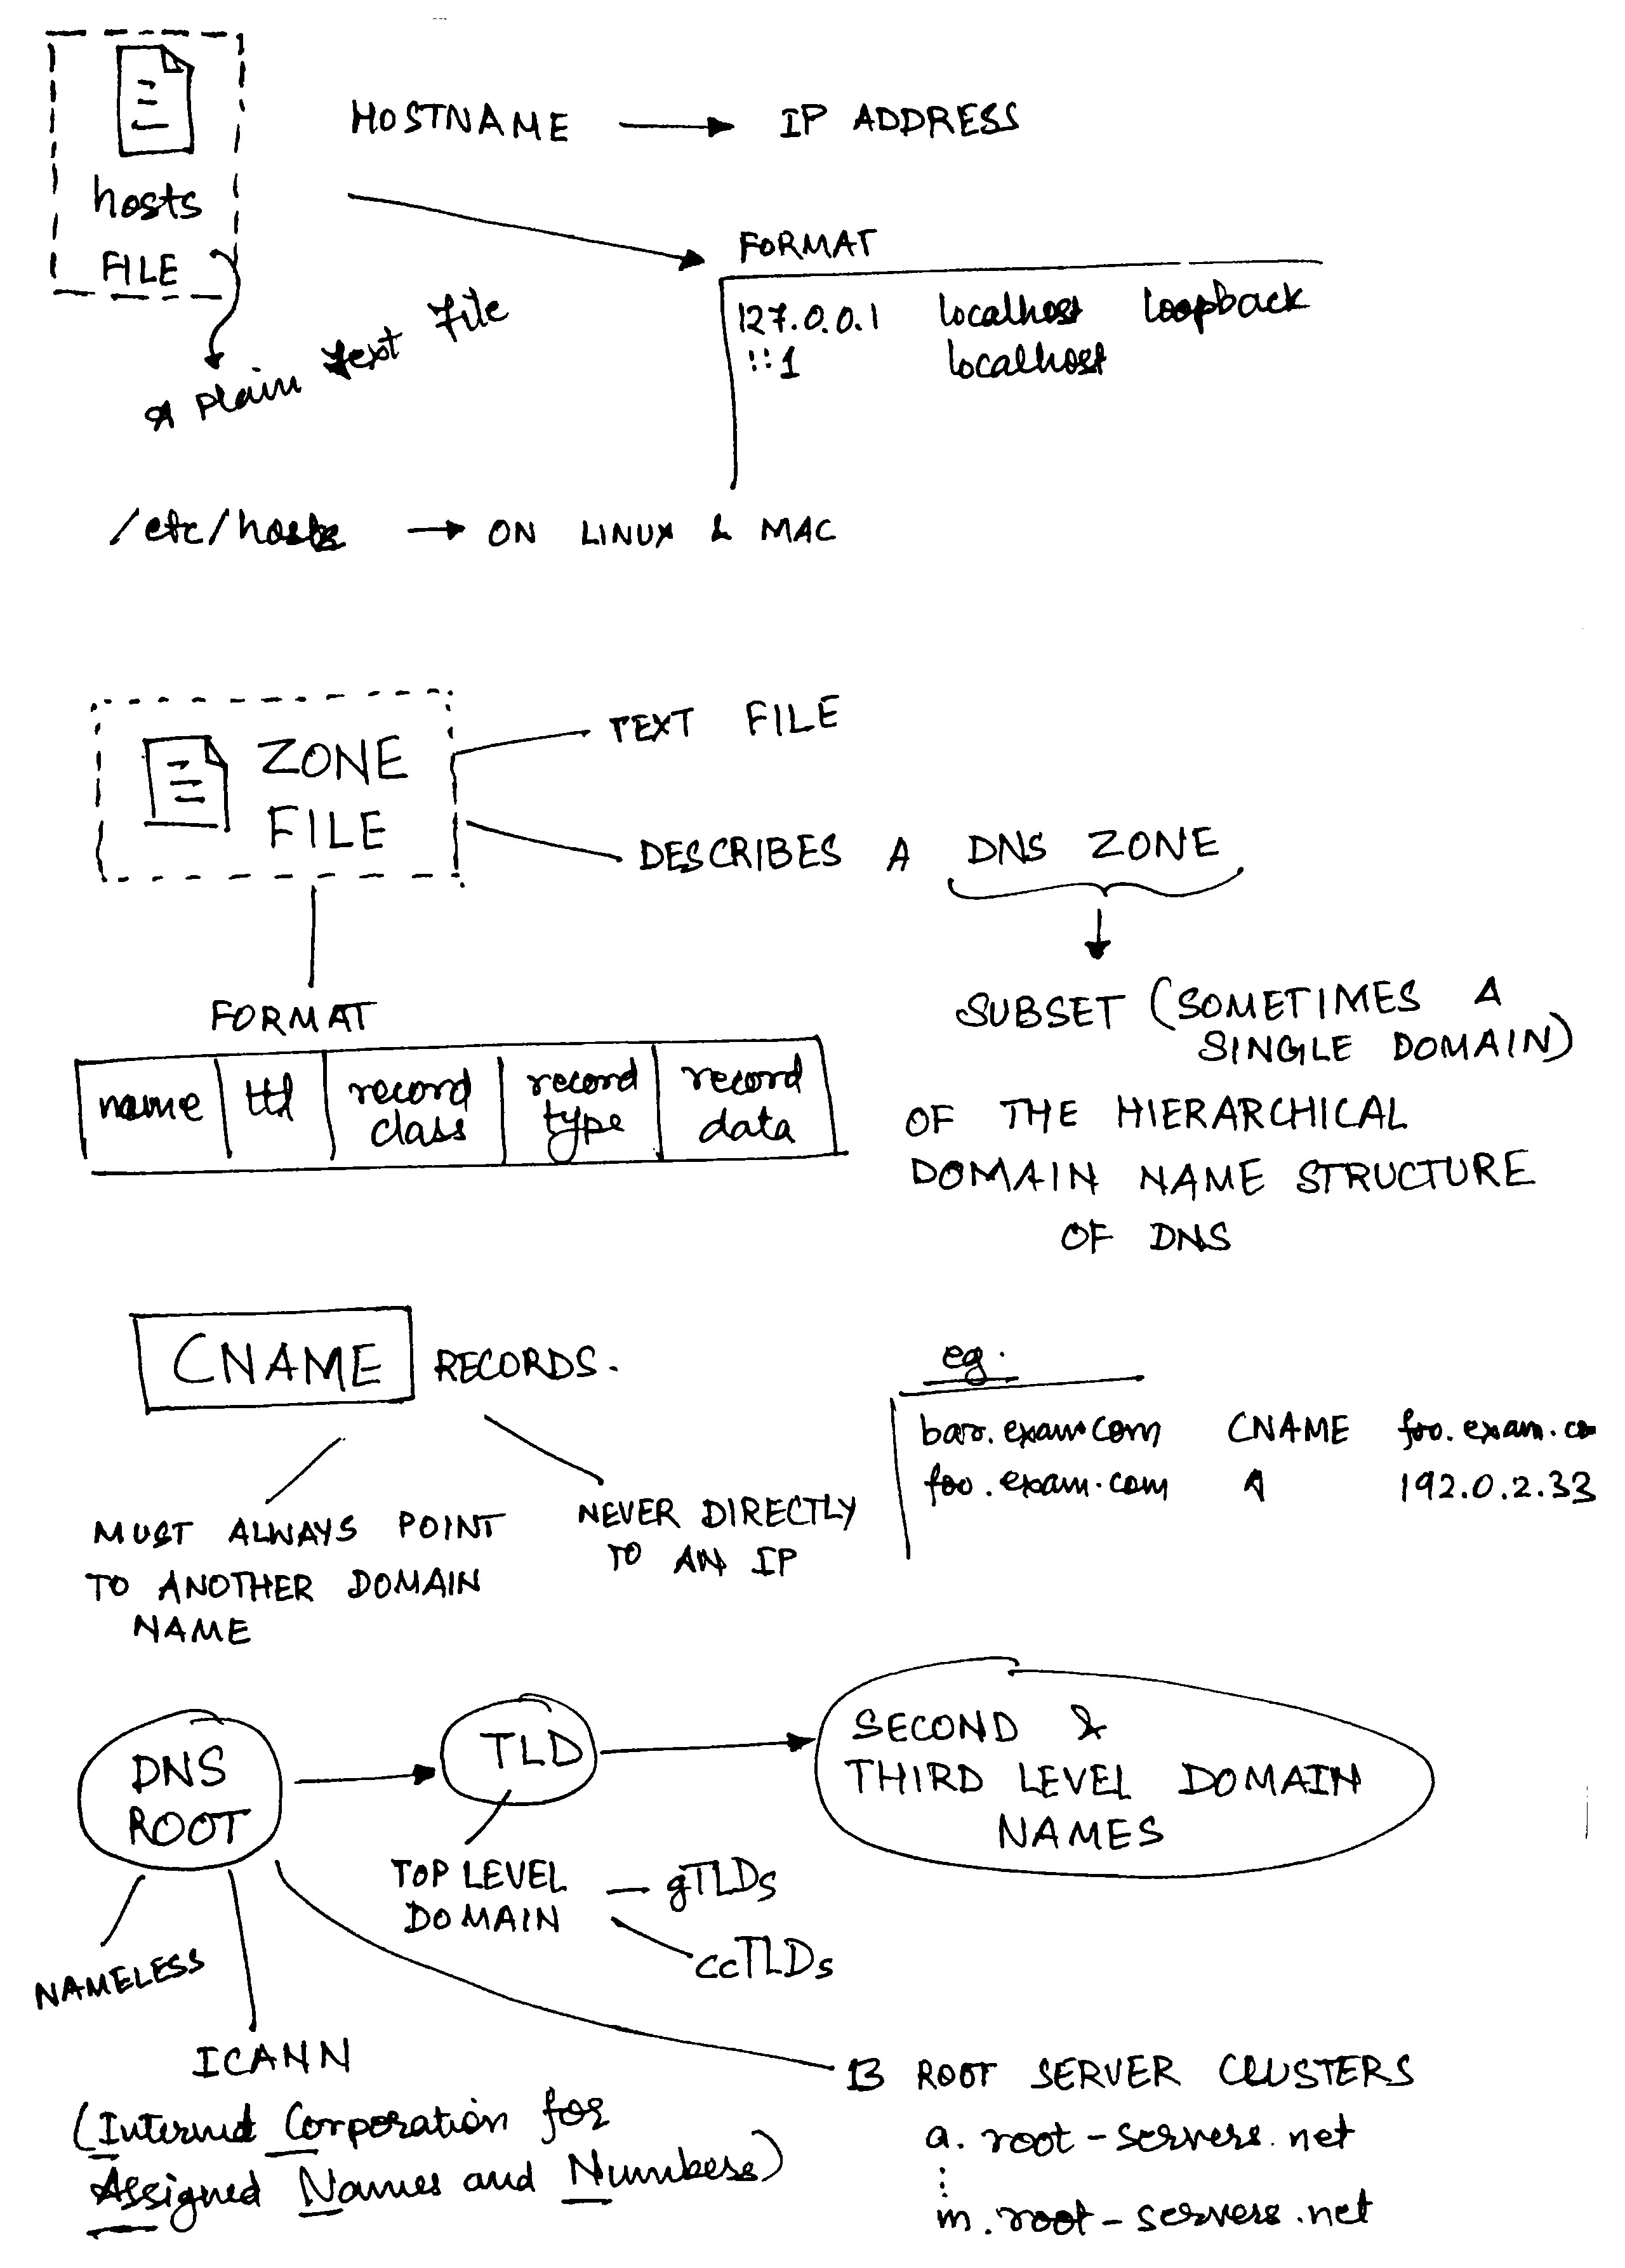 HOSTNAME → IP ADDRESS
hosts
FILE
A Plain Text File
FORMAT
127.0.0.1 localhost loopback
::1 localhost
/etc/hosts → ON LINUX & MAC
ZONE
FILE
TEXT FILE
DESCRIBES A DNS ZONE
SUBSET (SOMETIMES A
SINGLE DOMAIN)
OF THE HIERARCHICAL
DOMAIN NAME STRUCTURE
OF DNS
FORMAT
name ttl record class record type record data
CNAME RECORDS.
MUST ALWAYS POINT
TO ANOTHER DOMAIN
NAME
NEVER DIRECTLY
TO AN IP
eg.
bar.exam.com CNAME foo.exam.co
foo.exam.com A 192.0.2.33
DNS
ROOT
TLD
SECOND &
THIRD LEVEL DOMAIN
NAMES
TOP LEVEL
DOMAIN
gTLDs
ccTLDs
NAMELESS
ICANN
(Internet Corporation for
Assigned Names and Numbers)
13 ROOT SERVER CLUSTERS
a.root-servers.net
⋮
m.root-servers.net